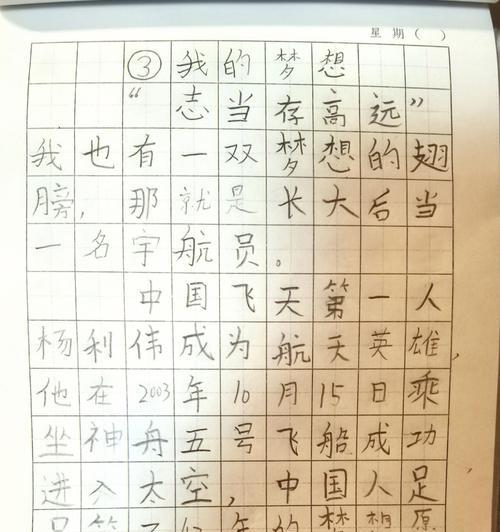 星期（ ）
③我的梦想
“志当存高远”
我也有一双梦想的翅
膀，那就是长大后当
一名宇航员。
中国飞天第一人
杨利伟成为航天英雄，
他在2003年10月15日乘
坐神舟五号飞船成功
进入太空，中国人足
年的梦想原